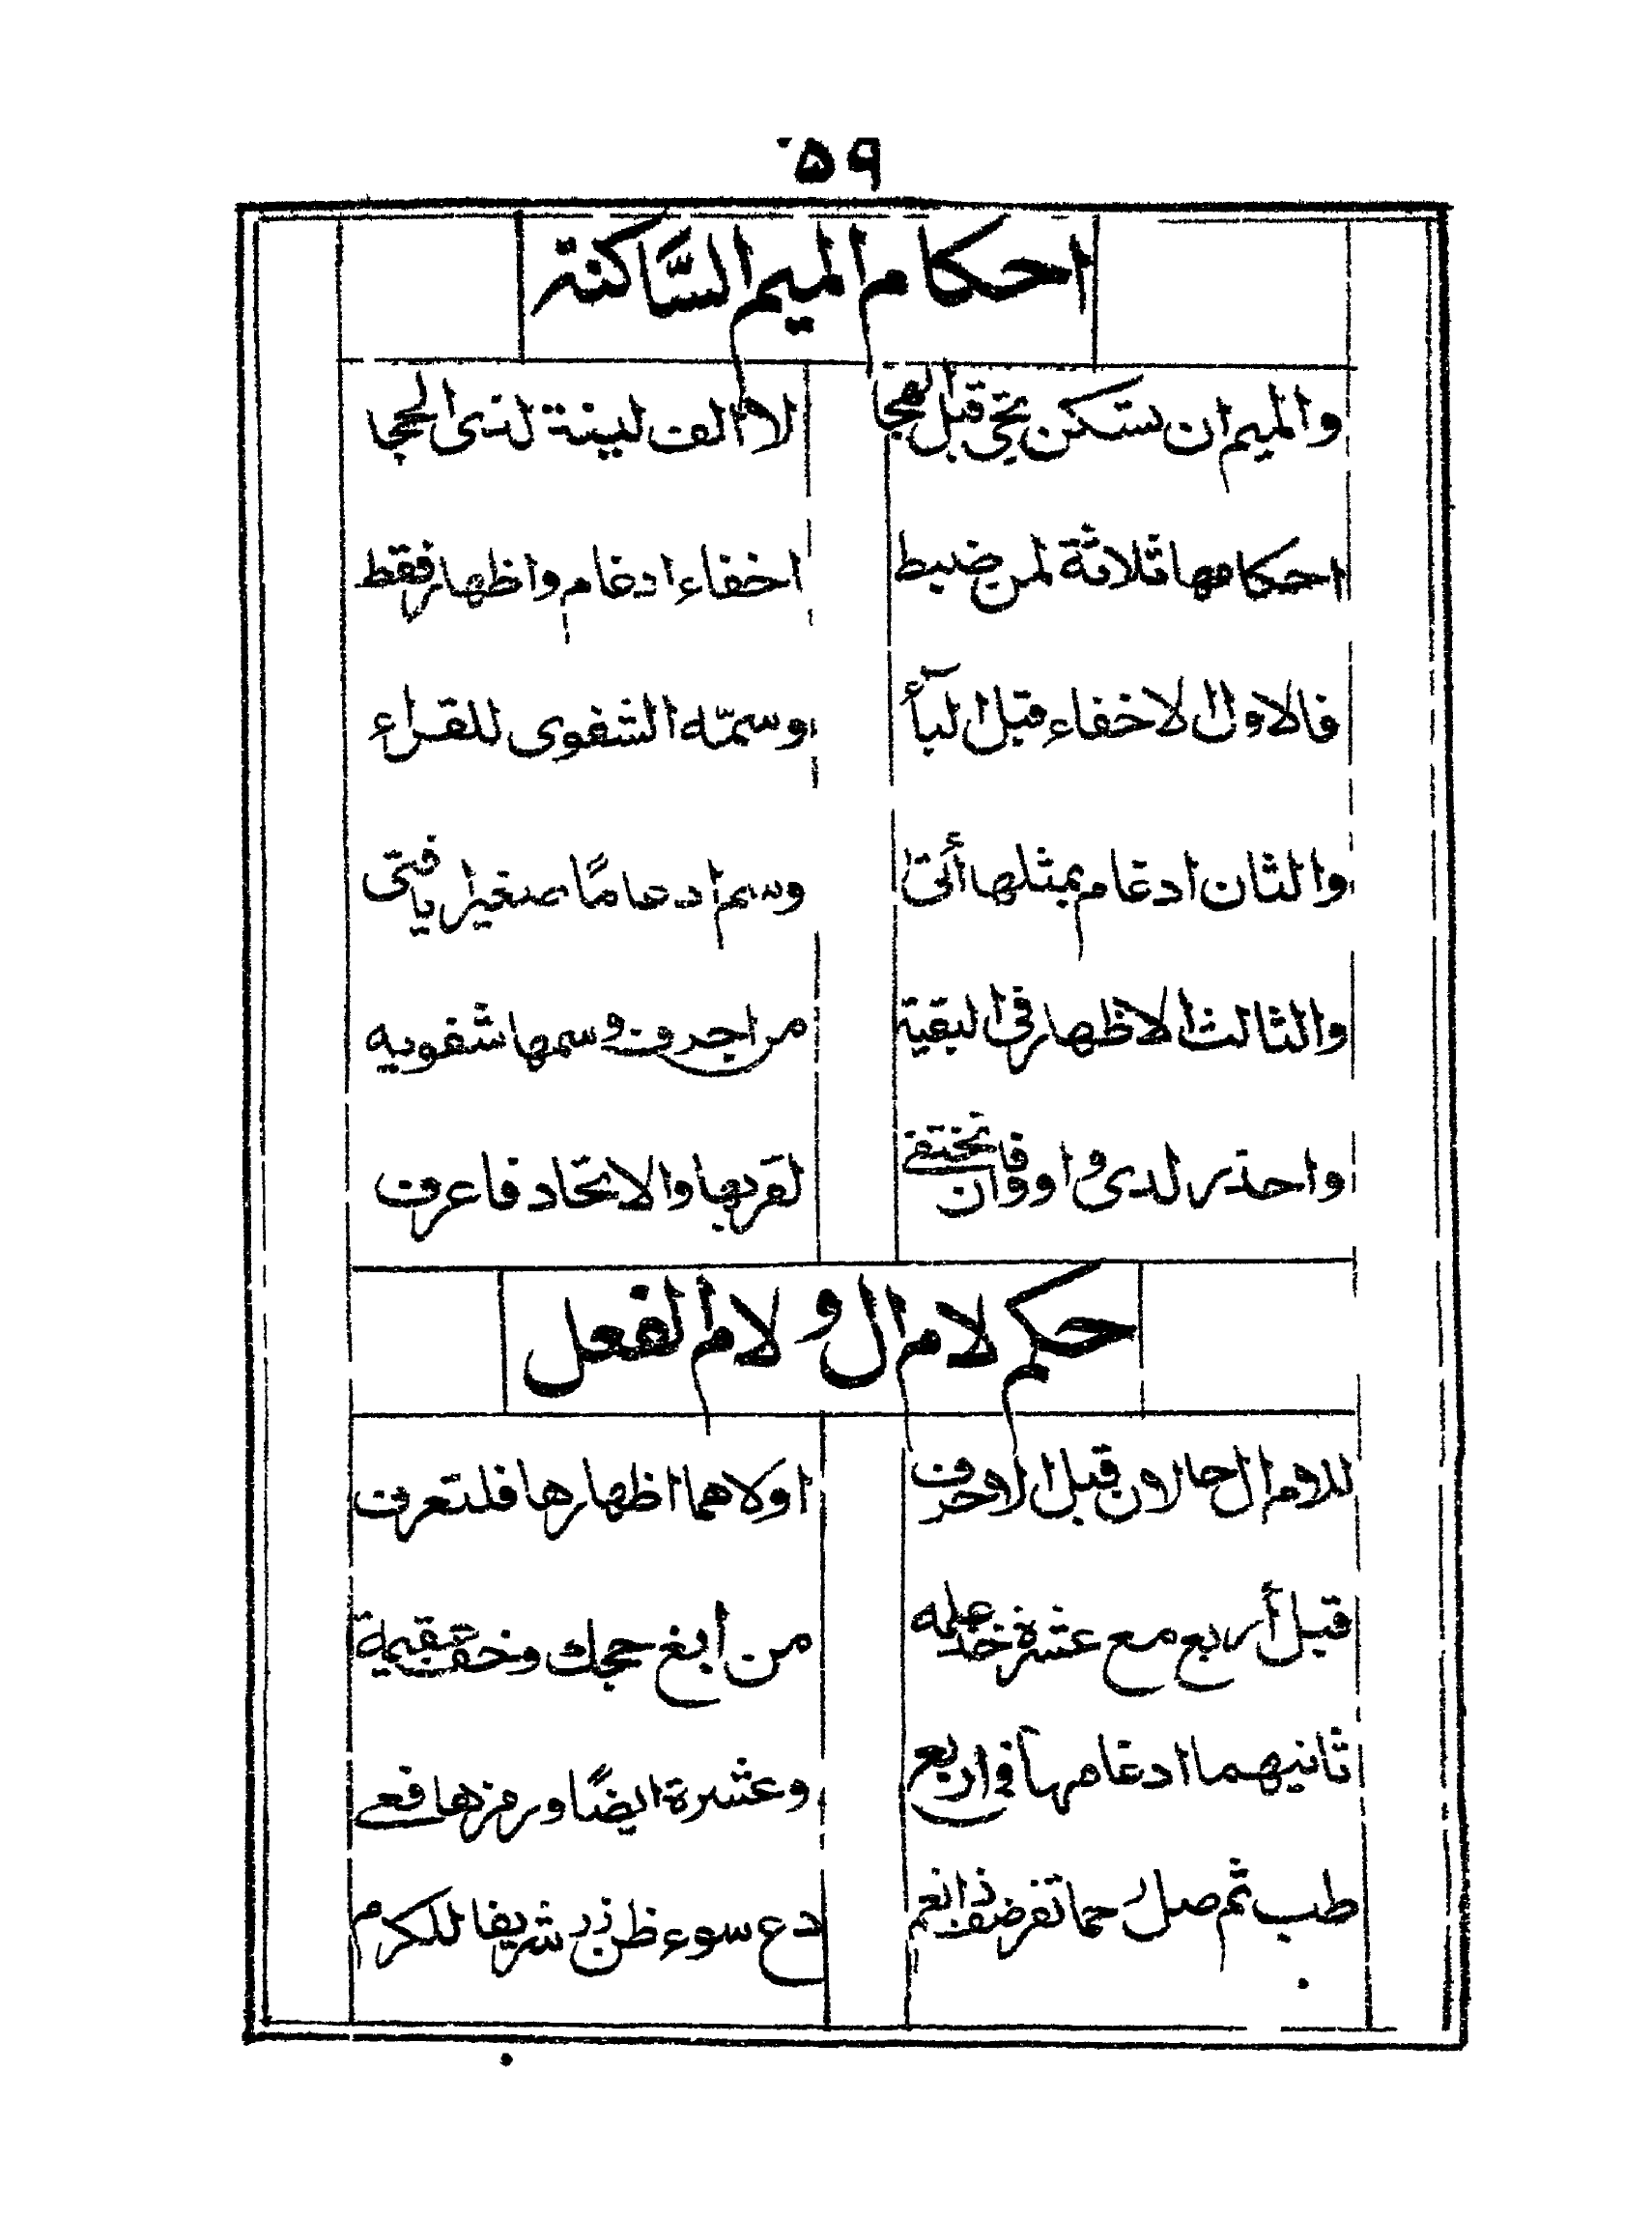 ٥٩
احكام الميم الساكنة
والميم ان تسكن تجى قبل الهجا لا الف لينة لذى الحجا
احكامها ثلاثة لمن ضبط اخفاء ادغام واظهار فقط
فالاول الاخفاء قبل البآء وسمّه الشفوى للقراء
والثان ادغام بمثلها أتى وسم ادغامًا صغيرا يافتى
والثالث الاظهار فى البقية من احرف وسمها شفويه
واحذر لدى واو وفا ان تختفى لقربها والاتحاد فاعرف
حكم لام ال و لام الفعل
للام ال حالان قبل الاحرف اولاهما اظهارها فلتعرف
قبل أربع مع عشرة خذ علمه من أبغ حجك وخف عقيمة
ثانيهما ادغامها فى اربع وعشرة ايضًا ورمزها فعى
طب ثم صل رحما تفز ضف ذا نعم دع سوء ظن زر شريفا للكرم